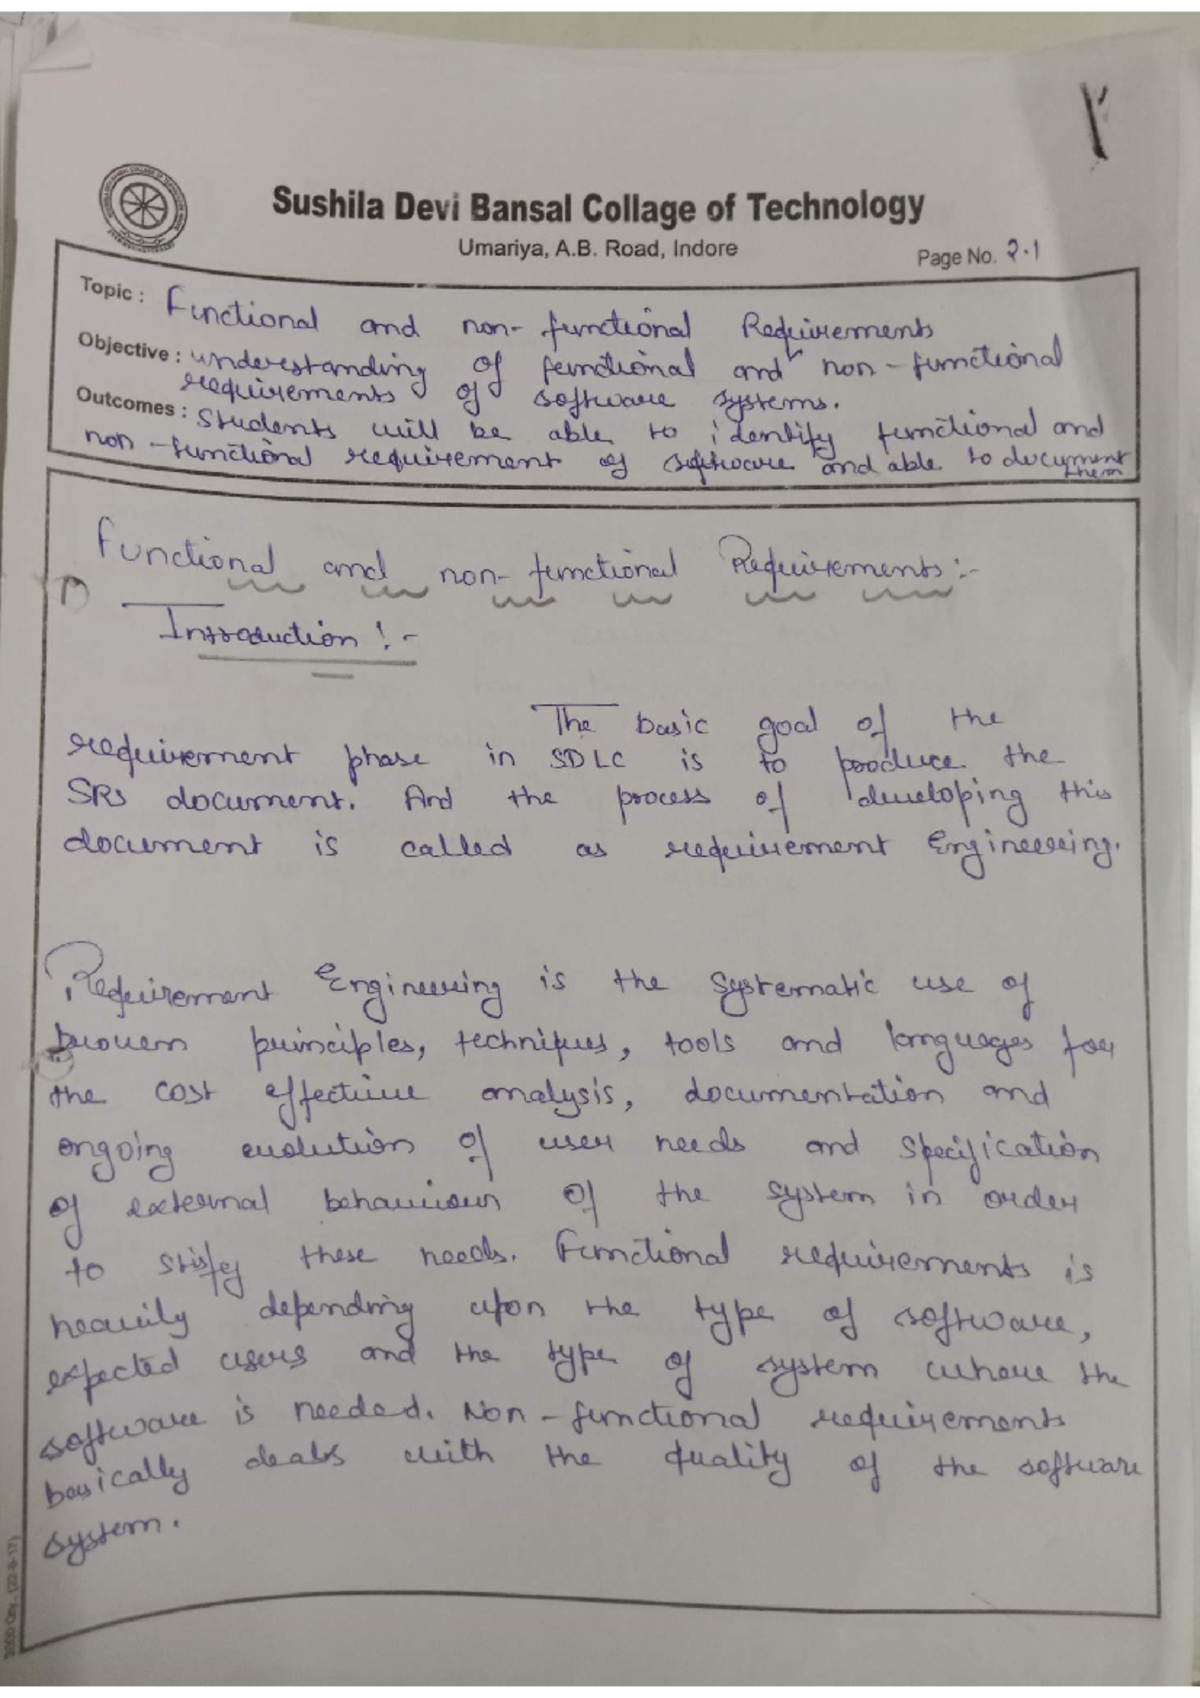 Sushila Devi Bansal Collage of Technology
Umariya, A.B. Road, Indore
Page No. 2.1
Topic : Functional and non-functional Requirements
Objective : understanding of functional and non-functional
requirements of software systems.
Outcomes : Students will be able to identify functional and
non-functional requirement of software and able to document
them
Functional and non-functional Requirements:-
Introduction :-
The basic goal of the
requirement phase in SDLC is to produce the
SRS document. And the process of developing this
document is called as requirement Engineering.
Requirement Engineering is the systematic use of
proven principles, techniques, tools and languages for
the cost effective analysis, documentation and
ongoing evolution of user needs and specification
of external behaviour of the system in order
to stisfy these needs. Functional requirements is
heavily depending upon the type of software,
expected users and the type of system where the
software is needed. Non-functional requirements
basically deals with the quality of the software
system.